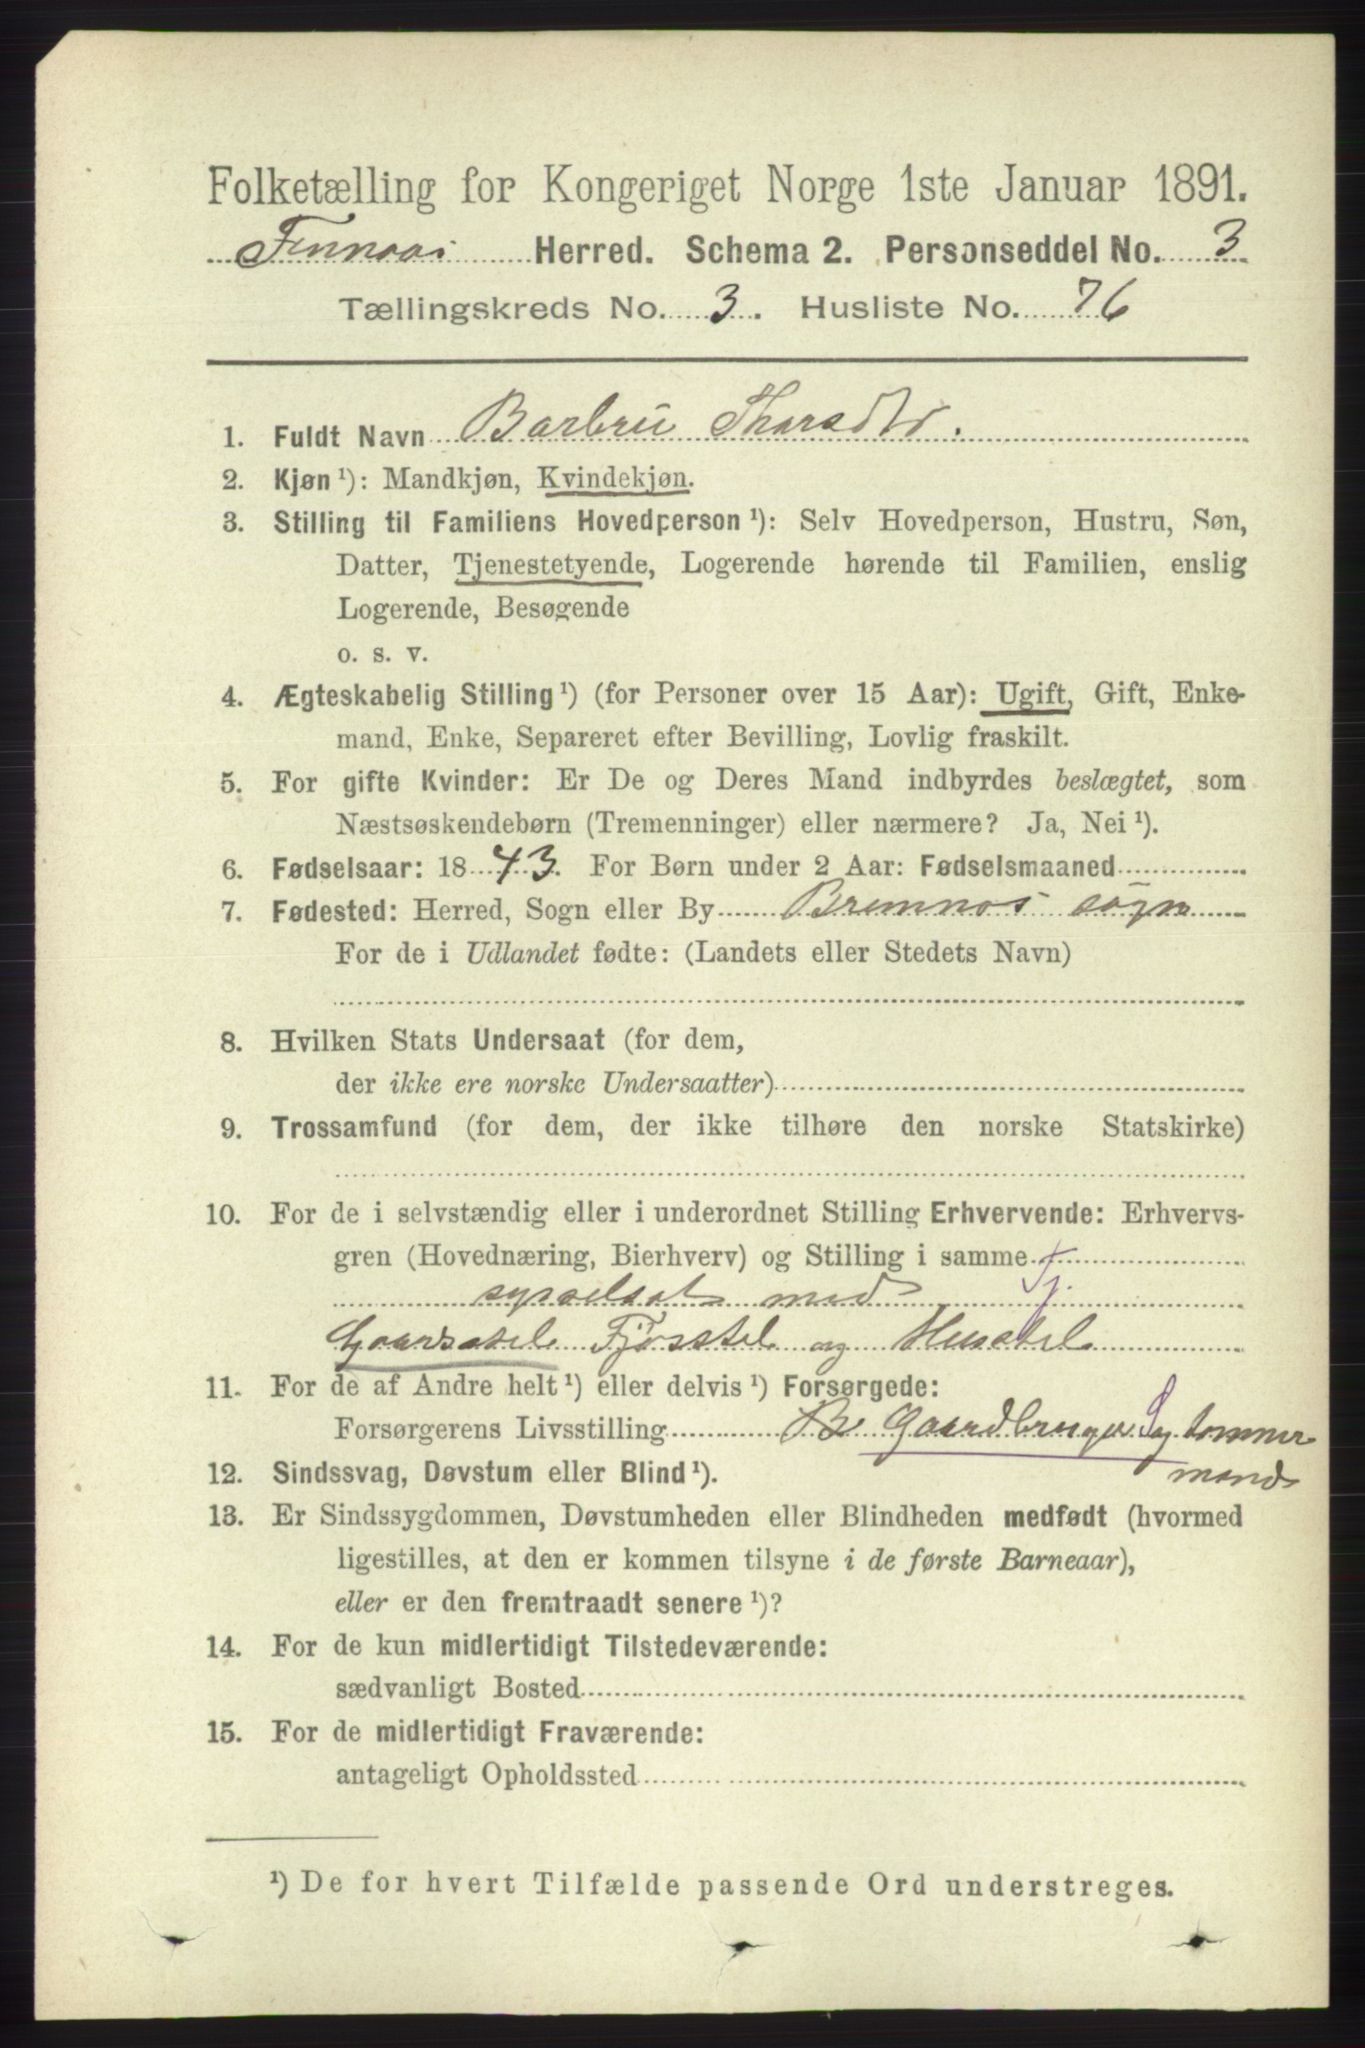 Folketælling for Kongeriget Norge 1ste Januar 1891.
Finnaas Herred. Schema 2. Personseddel No. 3
Tællingskreds No. 3. Husliste No. 76
1. Fuldt Navn Barbru Thorsdtr.
2. Kjøn ¹): Mandkjøn, Kvindekjøn.
3. Stilling til Familiens Hovedperson ¹): Selv Hovedperson, Hustru, Søn,
Datter, Tjenestetyende, Logerende hørende til Familien, enslig
Logerende, Besøgende
o. s. v.
4. Ægteskabelig Stilling ¹) (for Personer over 15 Aar): Ugift, Gift, Enke-
mand, Enke, Separeret efter Bevilling, Lovlig fraskilt.
5. For gifte Kvinder: Er De og Deres Mand indbyrdes beslægtet, som
Næstsøskendebørn (Tremenninger) eller nærmere? Ja, Nei ¹).
6. Fødselsaar: 1843. For Børn under 2 Aar: Fødselsmaaned
7. Fødested: Herred, Sogn eller By Bremnes sogn
For de i Udlandet fødte: (Landets eller Stedets Navn)
8. Hvilken Stats Undersaat (for dem,
der ikke ere norske Undersaatter)
9. Trossamfund (for dem, der ikke tilhøre den norske Statskirke)
10. For de i selvstændig eller i underordnet Stilling Erhvervende: Erhvervs-
gren (Hovednæring, Bierhverv) og Stilling i samme
sysselsat med Tj.
Gaardsstel Fjøsstel og Husstel
11. For de af Andre helt ¹) eller delvis ¹) Forsørgede:
Forsørgerens Livsstilling Gaardbruger og tømmer
mand
12. Sindssvag, Døvstum eller Blind ¹).
13. Er Sindssygdommen, Døvstumheden eller Blindheden medfødt (hvormed
ligestilles, at den er kommen tilsyne i de første Barneaar),
eller er den fremtraadt senere ¹)?
14. For de kun midlertidigt Tilstedeværende:
sædvanligt Bosted
15. For de midlertidigt Fraværende:
antageligt Opholdssted
¹) De for hvert Tilfælde passende Ord understreges.